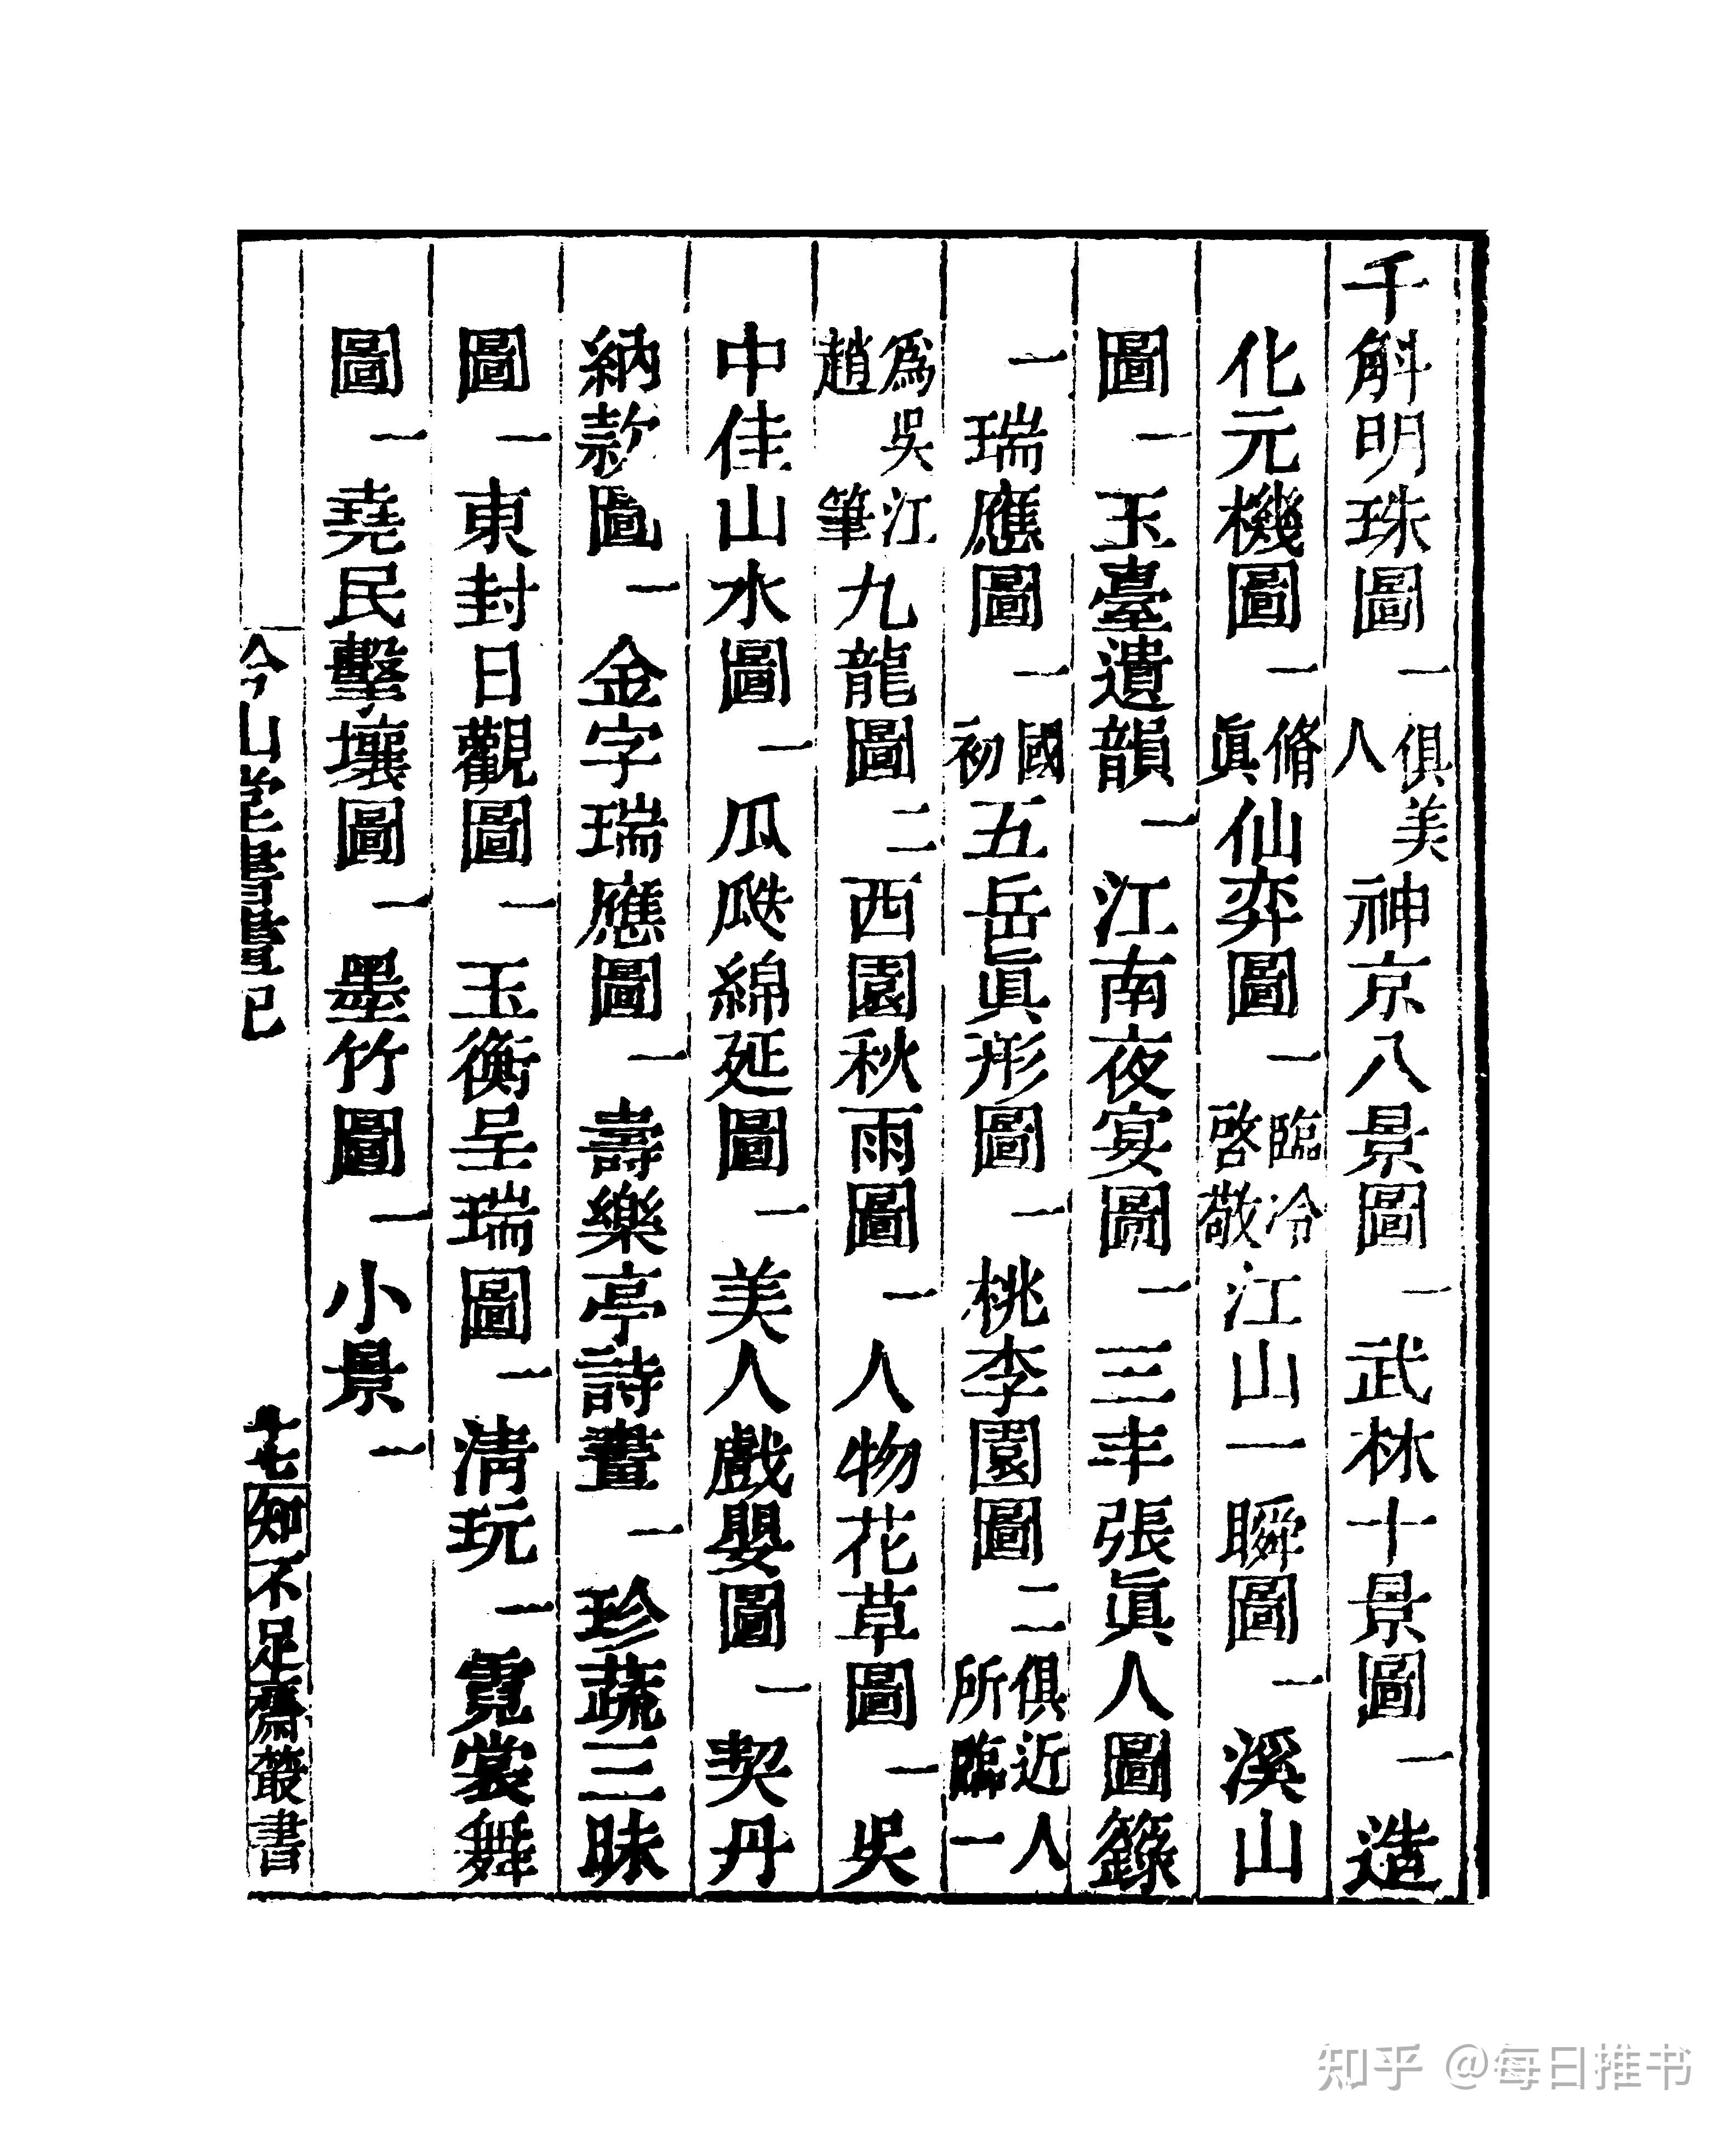 千斛明珠圖一俱美人神京八景圖一武林十景圖一造
化元機圖一脩眞仙弈圖一臨冷啓敬江山一瞬圖一溪山
圖一玉臺遺韻一江南夜宴圖一三丰張眞人圖籙
一瑞應圖一國初五岳眞形圖一桃李園圖二俱近人所臨一
爲吳江趙筆九龍圖二西園秋雨圖一人物花草圖一吳
中佳山水圖一瓜瓞綿延圖一美人戲嬰圖一契丹
納款圖一金字瑞應圖一壽樂亭詩畫一珍蔬三昧
圖一東封日觀圖一玉衡呈瑞圖一淸玩一霓裳舞
圖一堯民擊壤圖一墨竹圖一小景一
鈐山堂書畫記
十七
知不足齋叢書
知乎 @每日推书